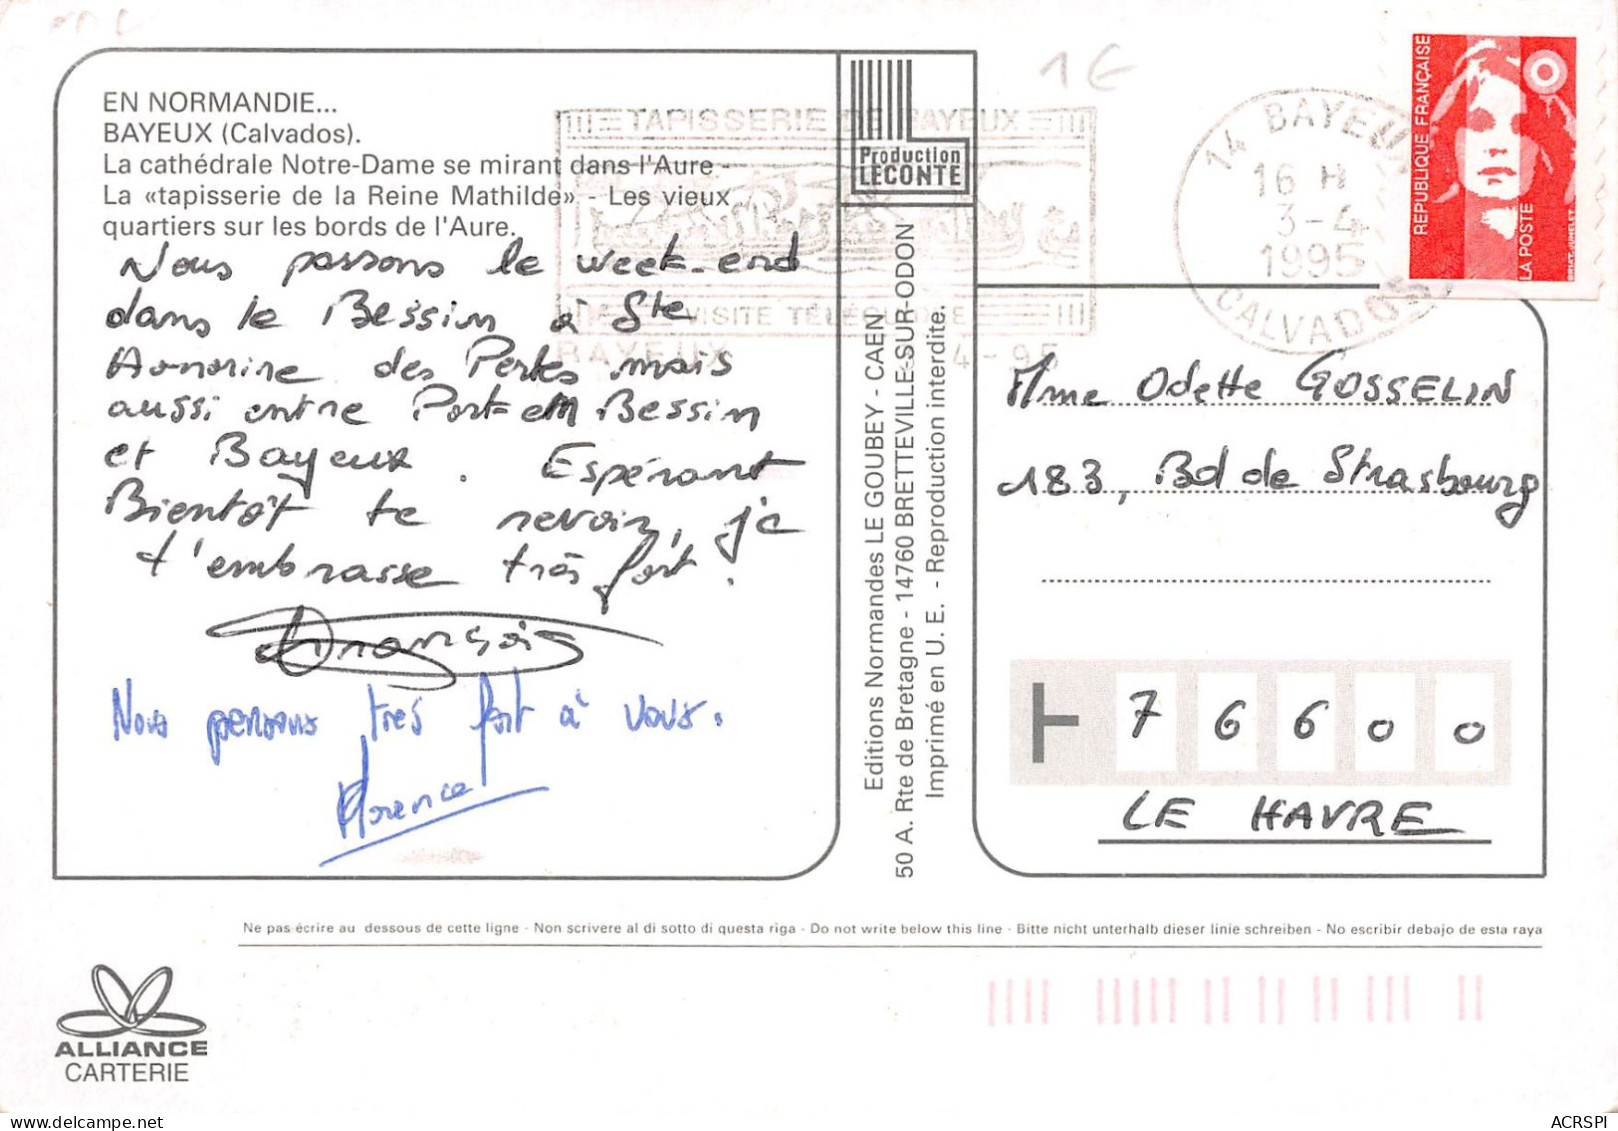 1€
EN NORMANDIE...
BAYEUX (Calvados).
La cathédrale Notre-Dame se mirant dans l'Aure -
La «tapisserie de la Reine Mathilde» - Les vieux
quartiers sur les bords de l'Aure.
Nous passons le week-end
dans le Bessin à Ste
Honorine des Pertes mais
aussi entre Port en Bessin
et Bayeux. Espérant
Bientôt te revoir, je
t'embrasse très fort.
François
Nous pensons très fort à vous.
Florence
TAPISSERIE DE BAYEUX
VISITE TÉLÉGUIDÉE
BAYEUX 4-95
Production
LECONTE
Editions Normandes LE GOUBEY - CAEN
50 A. Rte de Bretagne - 14760 BRETTEVILLE-SUR-ODON
Imprimé en U. E. - Reproduction interdite.
14 BAYEUX
16 H
3-4
1995
CALVADOS
REPUBLIQUE FRANÇAISE
LA POSTE
BRIAT-JUMELET
Mme Odette GOSSELIN
183, Bd de Strasbourg
76600
LE HAVRE
Ne pas écrire au dessous de cette ligne - Non scrivere al di sotto di questa riga - Do not write below this line - Bitte nicht unterhalb dieser linie schreiben - No escribir debajo de esta raya
ALLIANCE
CARTERIE
ACRSPI